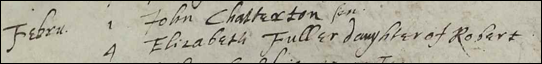 Febru. 1 John Chatterton sen.
4 Elizabeth Fuller daughter of Robert